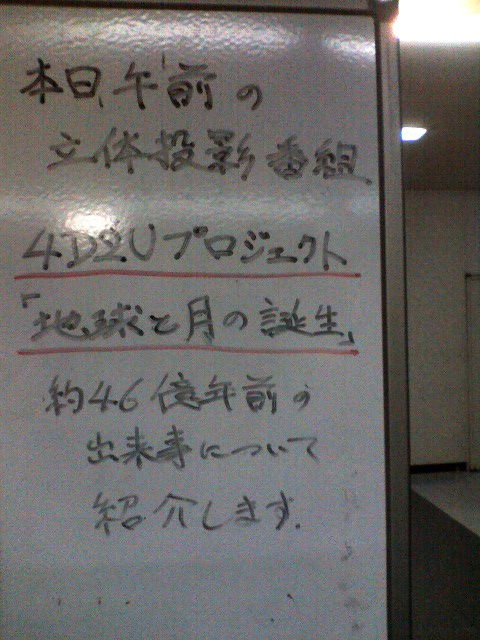 本日、午前の
立体投影番組
4D2Uプロジェクト
「地球と月の誕生」
約46億年前の
出来事について
紹介します.